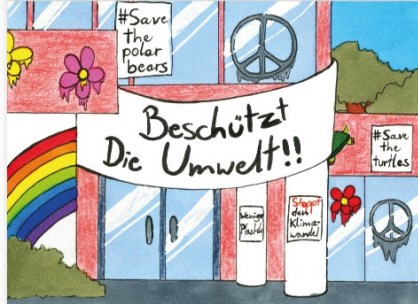 #Save
the
polar
bears
Beschützt
Die Umwelt!!
#Save
the
turtles
weniger
Plastik
Stoppt
den
Klima-
wandel